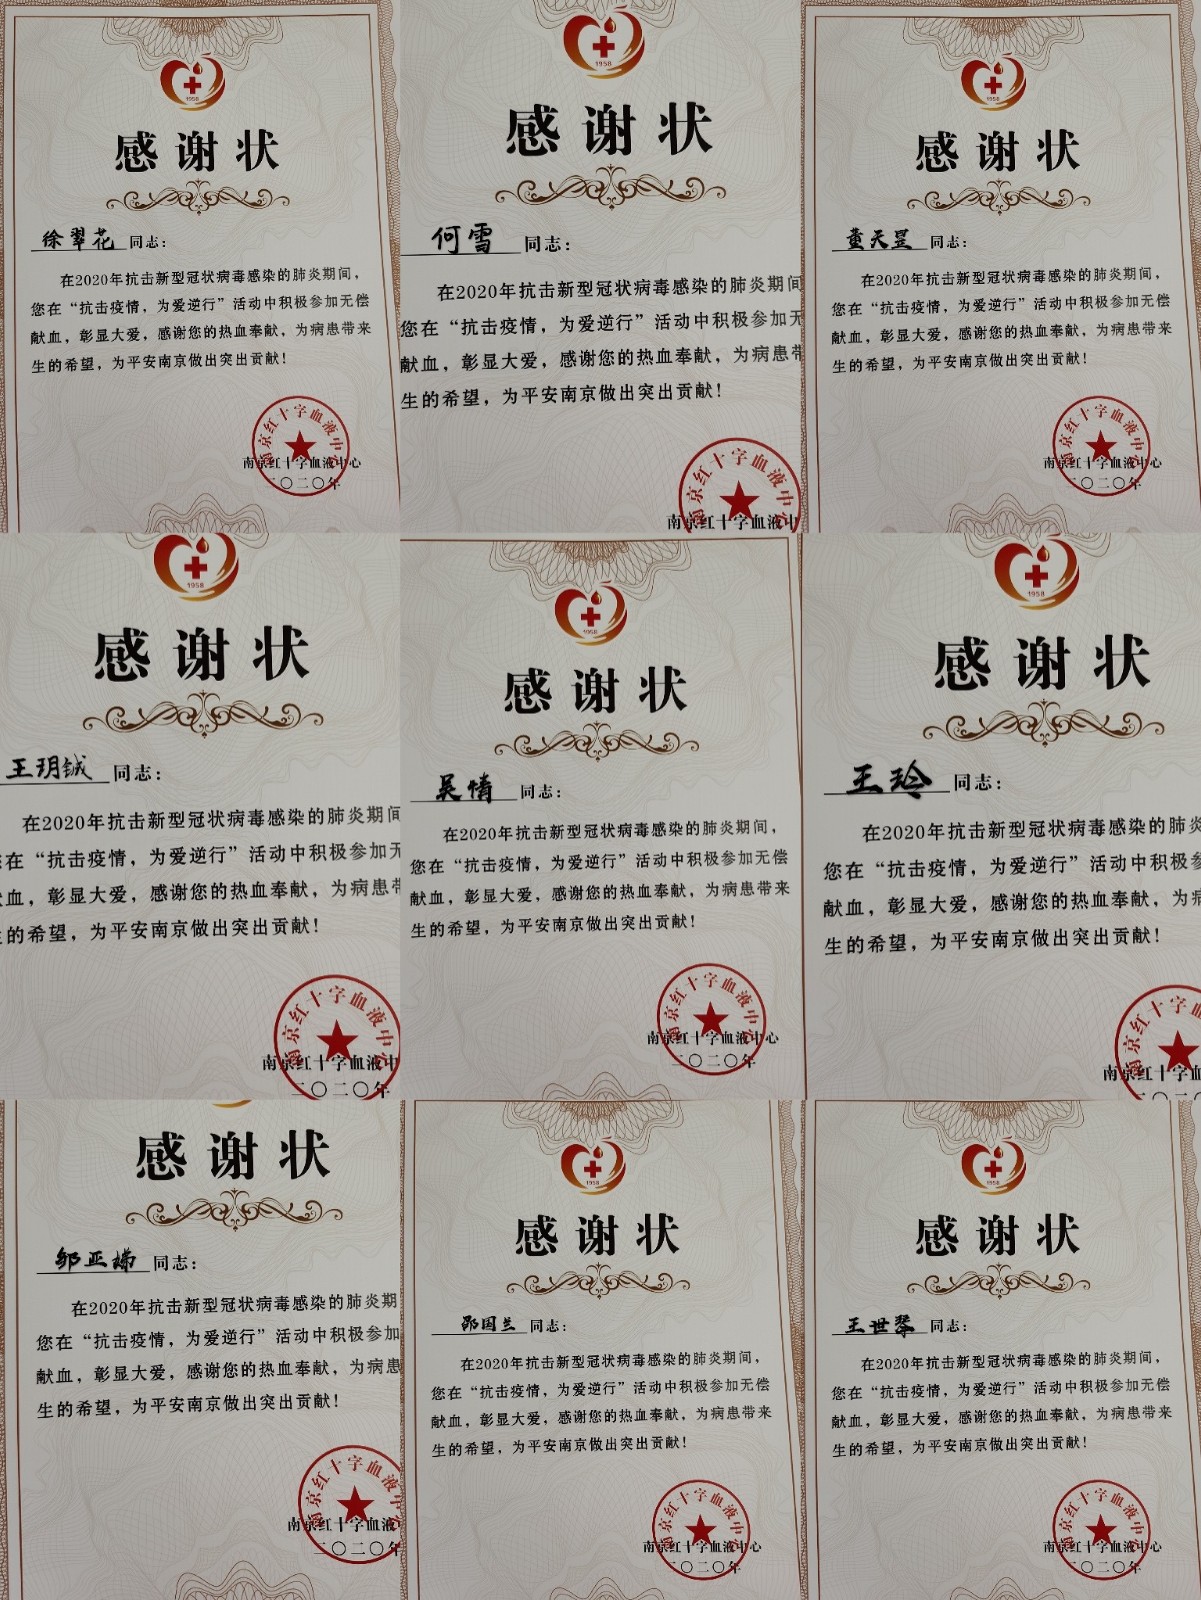 1958
感谢状
徐翠花 同志：
在2020年抗击新型冠状病毒感染的肺炎期间，
您在“抗击疫情，为爱逆行”活动中积极参加无偿
献血，彰显大爱，感谢您的热血奉献，为病患带来
生的希望，为平安南京做出突出贡献！
南京红十字血液中心
南京红十字血液中心
二〇二〇年
1958
感谢状
何雪 同志：
在2020年抗击新型冠状病毒感染的肺炎期间
您在“抗击疫情，为爱逆行”活动中积极参加无
献血，彰显大爱，感谢您的热血奉献，为病患带
生的希望，为平安南京做出突出贡献！
南京红十字血液中心
南京红十字血液中
1958
感谢状
童天昱 同志：
在2020年抗击新型冠状病毒感染的肺炎期间，
您在“抗击疫情，为爱逆行”活动中积极参加无偿
献血，彰显大爱，感谢您的热血奉献，为病患带来
生的希望，为平安南京做出突出贡献！
南京红十字血液中心
南京红十字血液中心
二〇二〇年
1958
感谢状
王玥铖 同志：
在2020年抗击新型冠状病毒感染的肺炎期间
在“抗击疫情，为爱逆行”活动中积极参加无
血，彰显大爱，感谢您的热血奉献，为病患带
的希望，为平安南京做出突出贡献！
南京红十字血液中心
南京红十字血液中
二〇二〇年
1958
感谢状
吴情 同志：
在2020年抗击新型冠状病毒感染的肺炎期间，
您在“抗击疫情，为爱逆行”活动中积极参加无偿
献血，彰显大爱，感谢您的热血奉献，为病患带来
生的希望，为平安南京做出突出贡献！
南京红十字血液中心
南京红十字血液中心
二〇二〇年
1958
感谢状
王玲 同志：
在2020年抗击新型冠状病毒感染的肺炎
您在“抗击疫情，为爱逆行”活动中积极参
献血，彰显大爱，感谢您的热血奉献，为病
生的希望，为平安南京做出突出贡献！
南京红十字血
南京红十字血
二〇二〇
感谢状
邹亚娣 同志：
在2020年抗击新型冠状病毒感染的肺炎期
您在“抗击疫情，为爱逆行”活动中积极参加
献血，彰显大爱，感谢您的热血奉献，为病患
生的希望，为平安南京做出突出贡献！
南京红十字血液中
南京红十字血液
二〇二〇年
1958
感谢状
邵国兰 同志：
在2020年抗击新型冠状病毒感染的肺炎期间，
您在“抗击疫情，为爱逆行”活动中积极参加无偿
献血，彰显大爱，感谢您的热血奉献，为病患带来
生的希望，为平安南京做出突出贡献！
南京红十字血液中心
南京红十字血液中心
二〇二〇年
1958
感谢状
王世琴 同志：
在2020年抗击新型冠状病毒感染的肺炎期间，
您在“抗击疫情，为爱逆行”活动中积极参加无偿
献血，彰显大爱，感谢您的热血奉献，为病患带来
生的希望，为平安南京做出突出贡献！
南京红十字血液中心
南京红十字血液中心
二〇二〇年